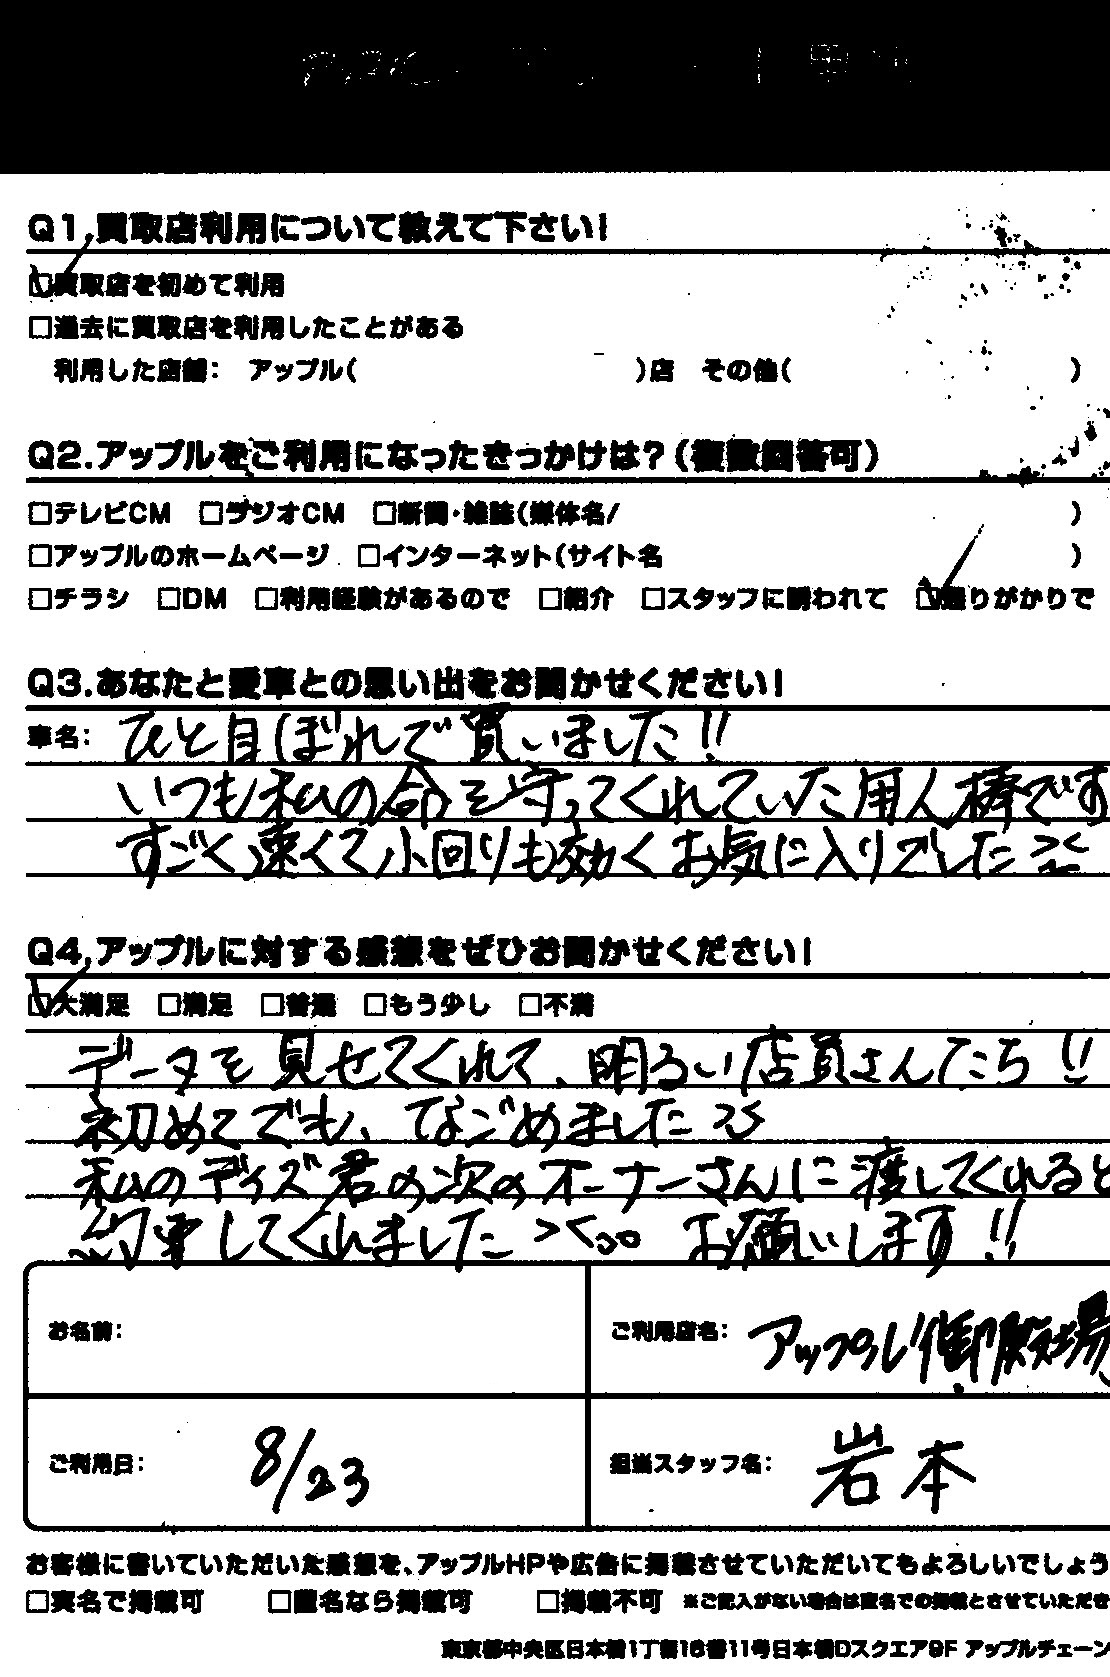 Q1.買取店利用について教えて下さい!
☑買取店を初めて利用
□過去に買取店を利用したことがある
利用した店舗: アップル( )店 その他( )
Q2.アップルをご利用になったきっかけは?(複数回答可)
□テレビCM □ラジオCM □新聞・雑誌(媒体名/ )
□アップルのホームページ □インターネット(サイト名 )
□チラシ □DM □利用経験があるので □紹介 □スタッフに誘われて ☑通りがかりで
Q3.あなたと愛車との思い出をお聞かせください!
車名: ひと目ぼれで買いました!!
いつも私の命を守ってくれていた用人棒です
すごく速くて小回りも効くお気に入りでした
Q4.アップルに対する感想をぜひお聞かせください!
☑大満足 □満足 □普通 □もう少し □不満
データを見せてくれて、明るい店員さんたち!!
初めてでも、なごめました
私のディズ君の次のオーナーさんに渡してくれると
約束してくれました お願いします!!
お名前:
ご利用店名: アップル御殿場
ご利用日: 8/23
担当スタッフ名: 岩本
お客様に書いていただいた感想を、アップルHPや広告に掲載させていただいてもよろしいでしょう
□実名で掲載可 □匿名なら掲載可 □掲載不可 ※ご記入がない場合は匿名での掲載とさせていただき
東京都中央区日本橋1丁目16番11号日本橋Dスクエア9F アップルチェーン